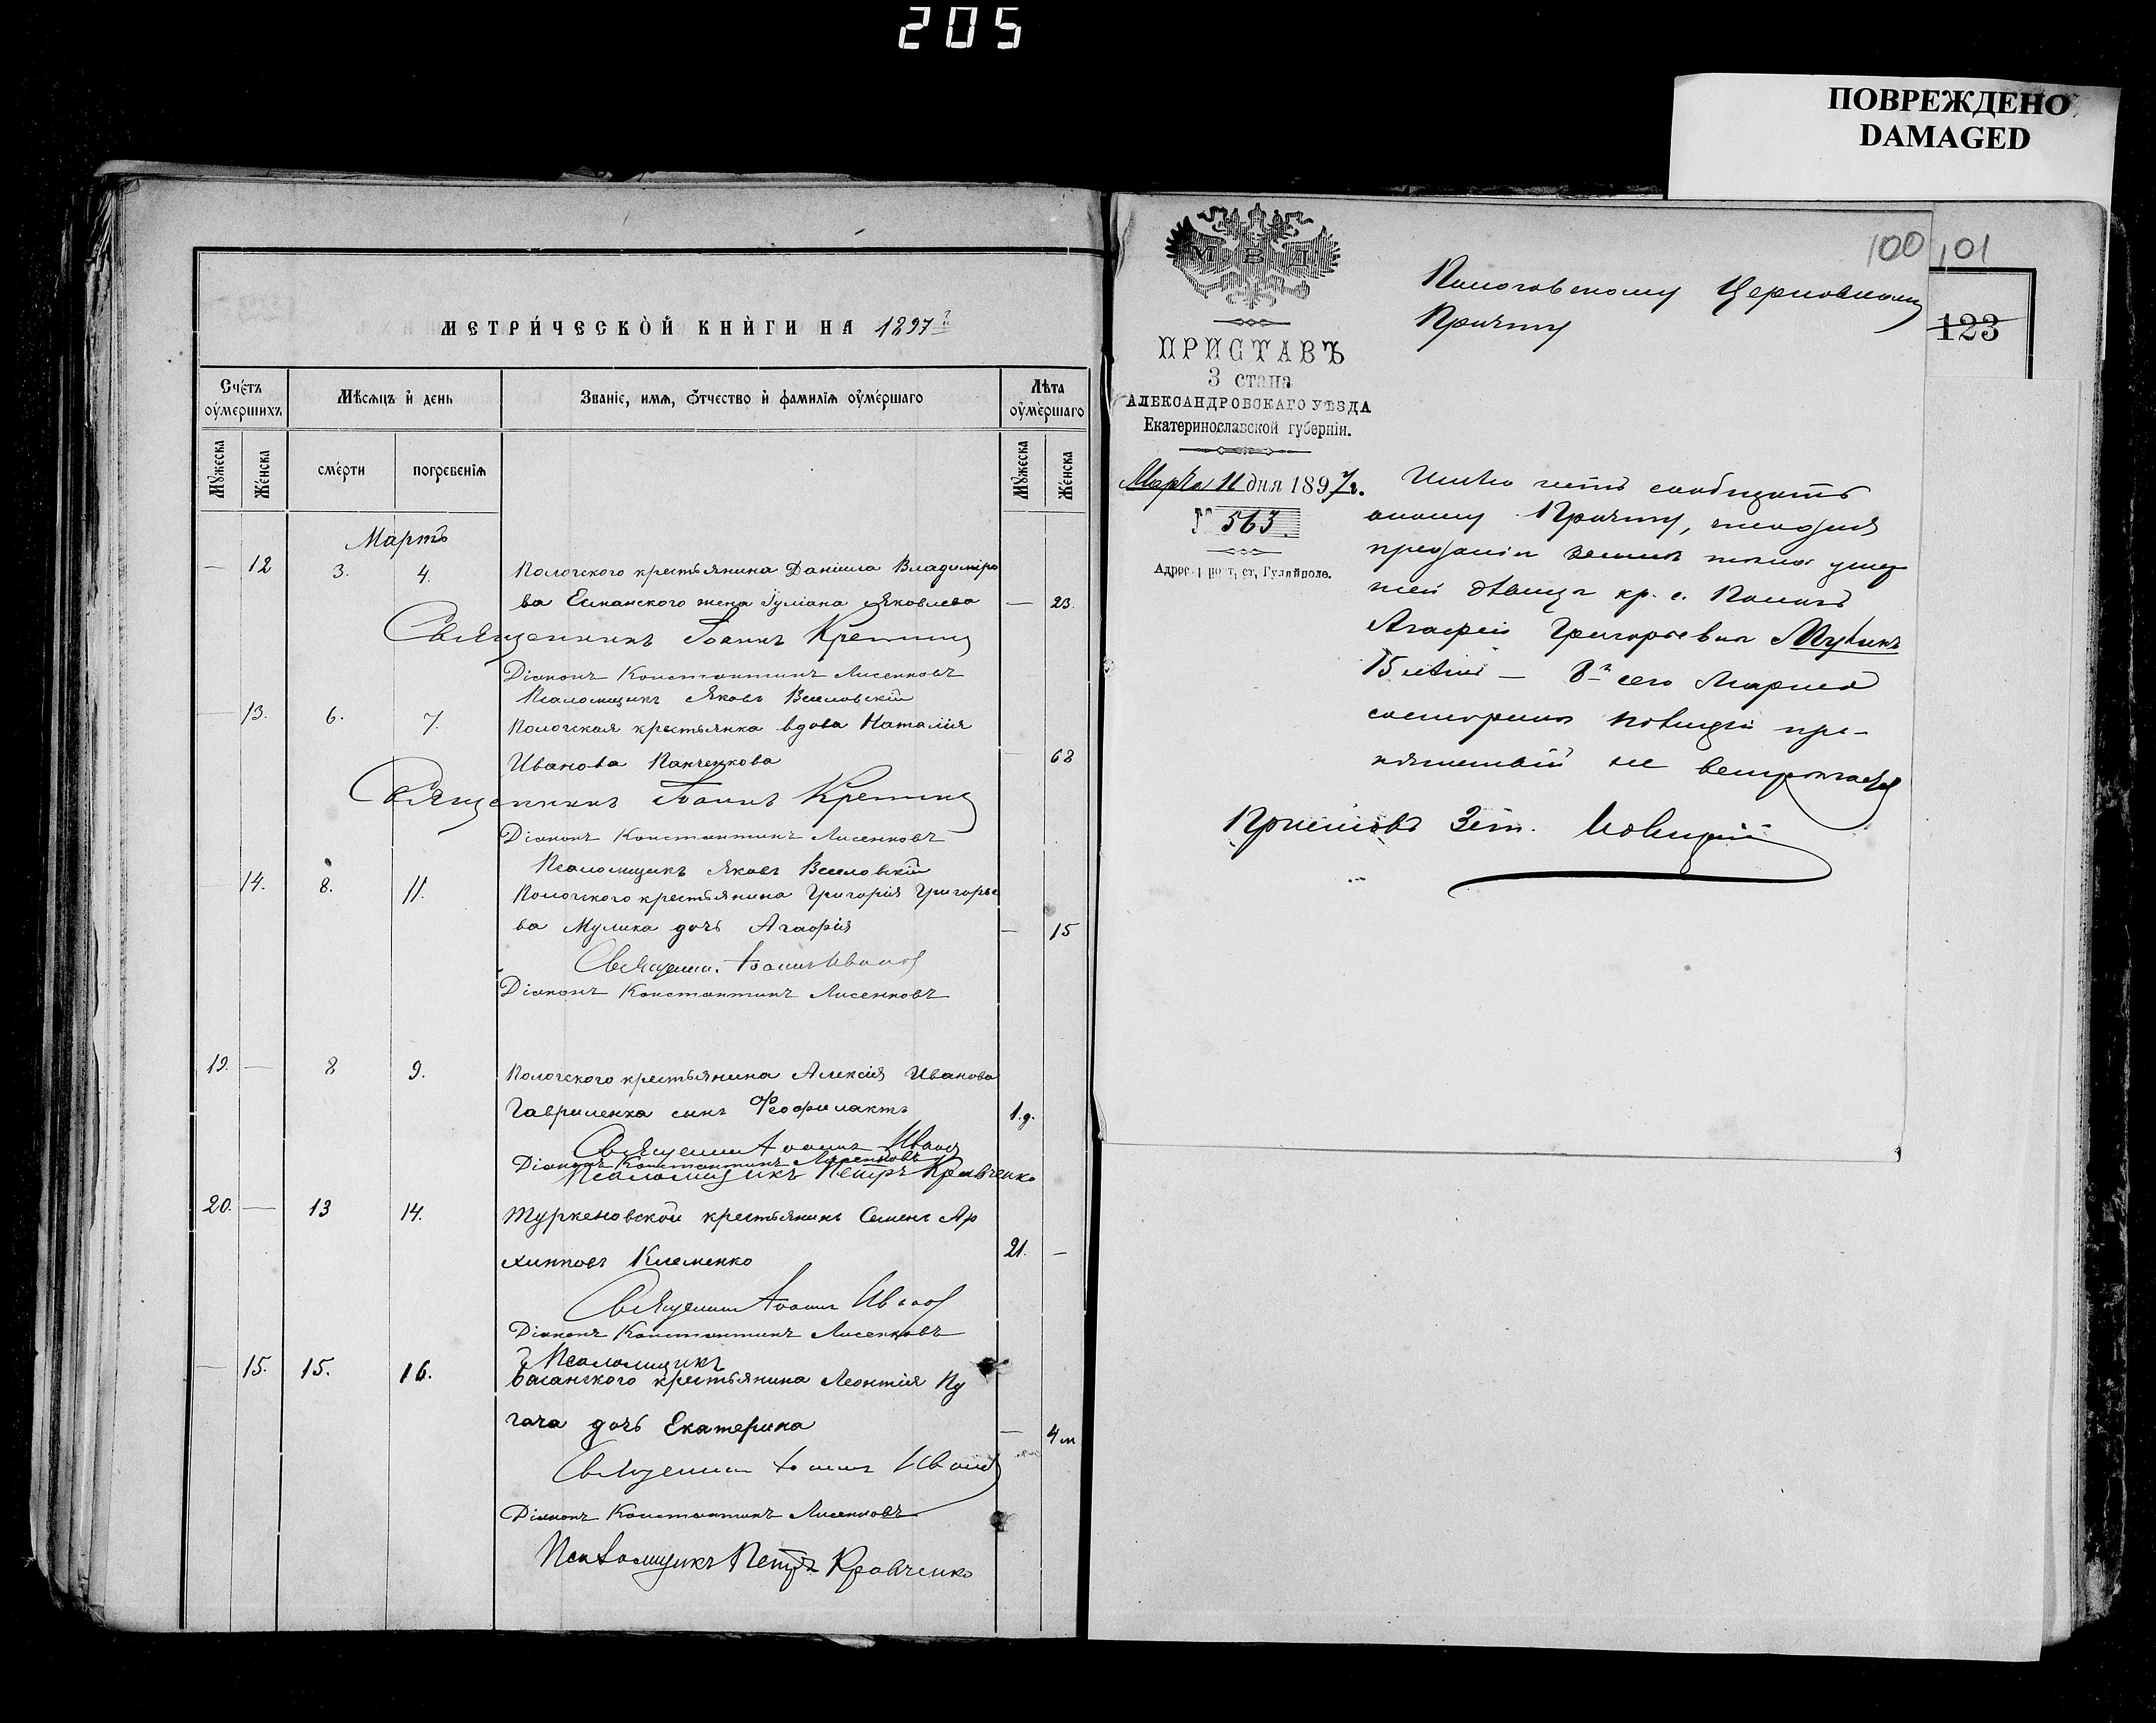 205
ПОВРЕЖДЕНО
DAMAGED
МЕТРИЧЕСКОЙ КНИГИ НА 1897 г.
Счетъ умершихъ
Мѣсяцъ и день
Званіе, имя, отчество и фамилія умершаго
Лѣта умершаго
Мужеска
Женска
смерти
погребенія
Мужеска
Женска
Мартъ
— 12 3. 4. Пологского крестьянина Даніила Владиміро
ва Есманского жена Іуліана Яковлева — 23.
Священникъ Іоаннъ
Діаконъ Константинъ Лисенковъ
Псаломщикъ Яковъ Веселовскій
— 13. 6. 7. Пологская крестьянка вдова Наталія
Иванова Панченкова — 68
Священникъ Іоаннъ
Діаконъ Константинъ Лисенковъ
Псаломщикъ Яковъ Веселовскій
14. 8. 11. Пологского крестьянина Григорія Григорье
ва Мулика дочь Агафія — 15
Священн. Іоаннъ Ивановъ
Діаконъ Константинъ Лисенковъ
19. — 8 9. Пологского крестьянина Алексія Иванова
Гавриленка сынъ Феофилактъ 1.д.
Священни Іоаннъ Ивановъ
Діаконъ Константинъ Лисенковъ
Псаломщикъ Петръ Кравченко
20. — 13 14. Туркеновской крестьянинъ Семенъ Ар
хиповъ Клеменко 21. —
Священни Іоаннъ Ивановъ
Діаконъ Константинъ Лисенковъ
Псаломщикъ
— 15. 15. 16. Басанского крестьянина Леонтія Пу
гача дочь Екатерина — 4 м
Священни Іоаннъ Ивановъ
Діаконъ Константинъ Лисенковъ
Псаломщикъ Петръ Кравченко
М В Д
ПРИСТАВЪ
3 стана
АЛЕКСАНДРОВСКАГО УѢЗДА
Екатеринославской губерніи.
Марта 11 дня 1897 г.
№ 563
Адрес: почт. ст. Гуляйполе.
100 101
123
Пологовскому Церковному
Причту
Имѣю честь сообщить
оному Причту, что для
преданія землѣ тѣла умер
шей дѣвицы кр. с. Пологъ
Агафіи Григорьевны Мулик
15 лѣтъ — 8го сего Марта
со стороны полиціи пре-
пятствій не встрѣчается
Приставъ 3 ст.